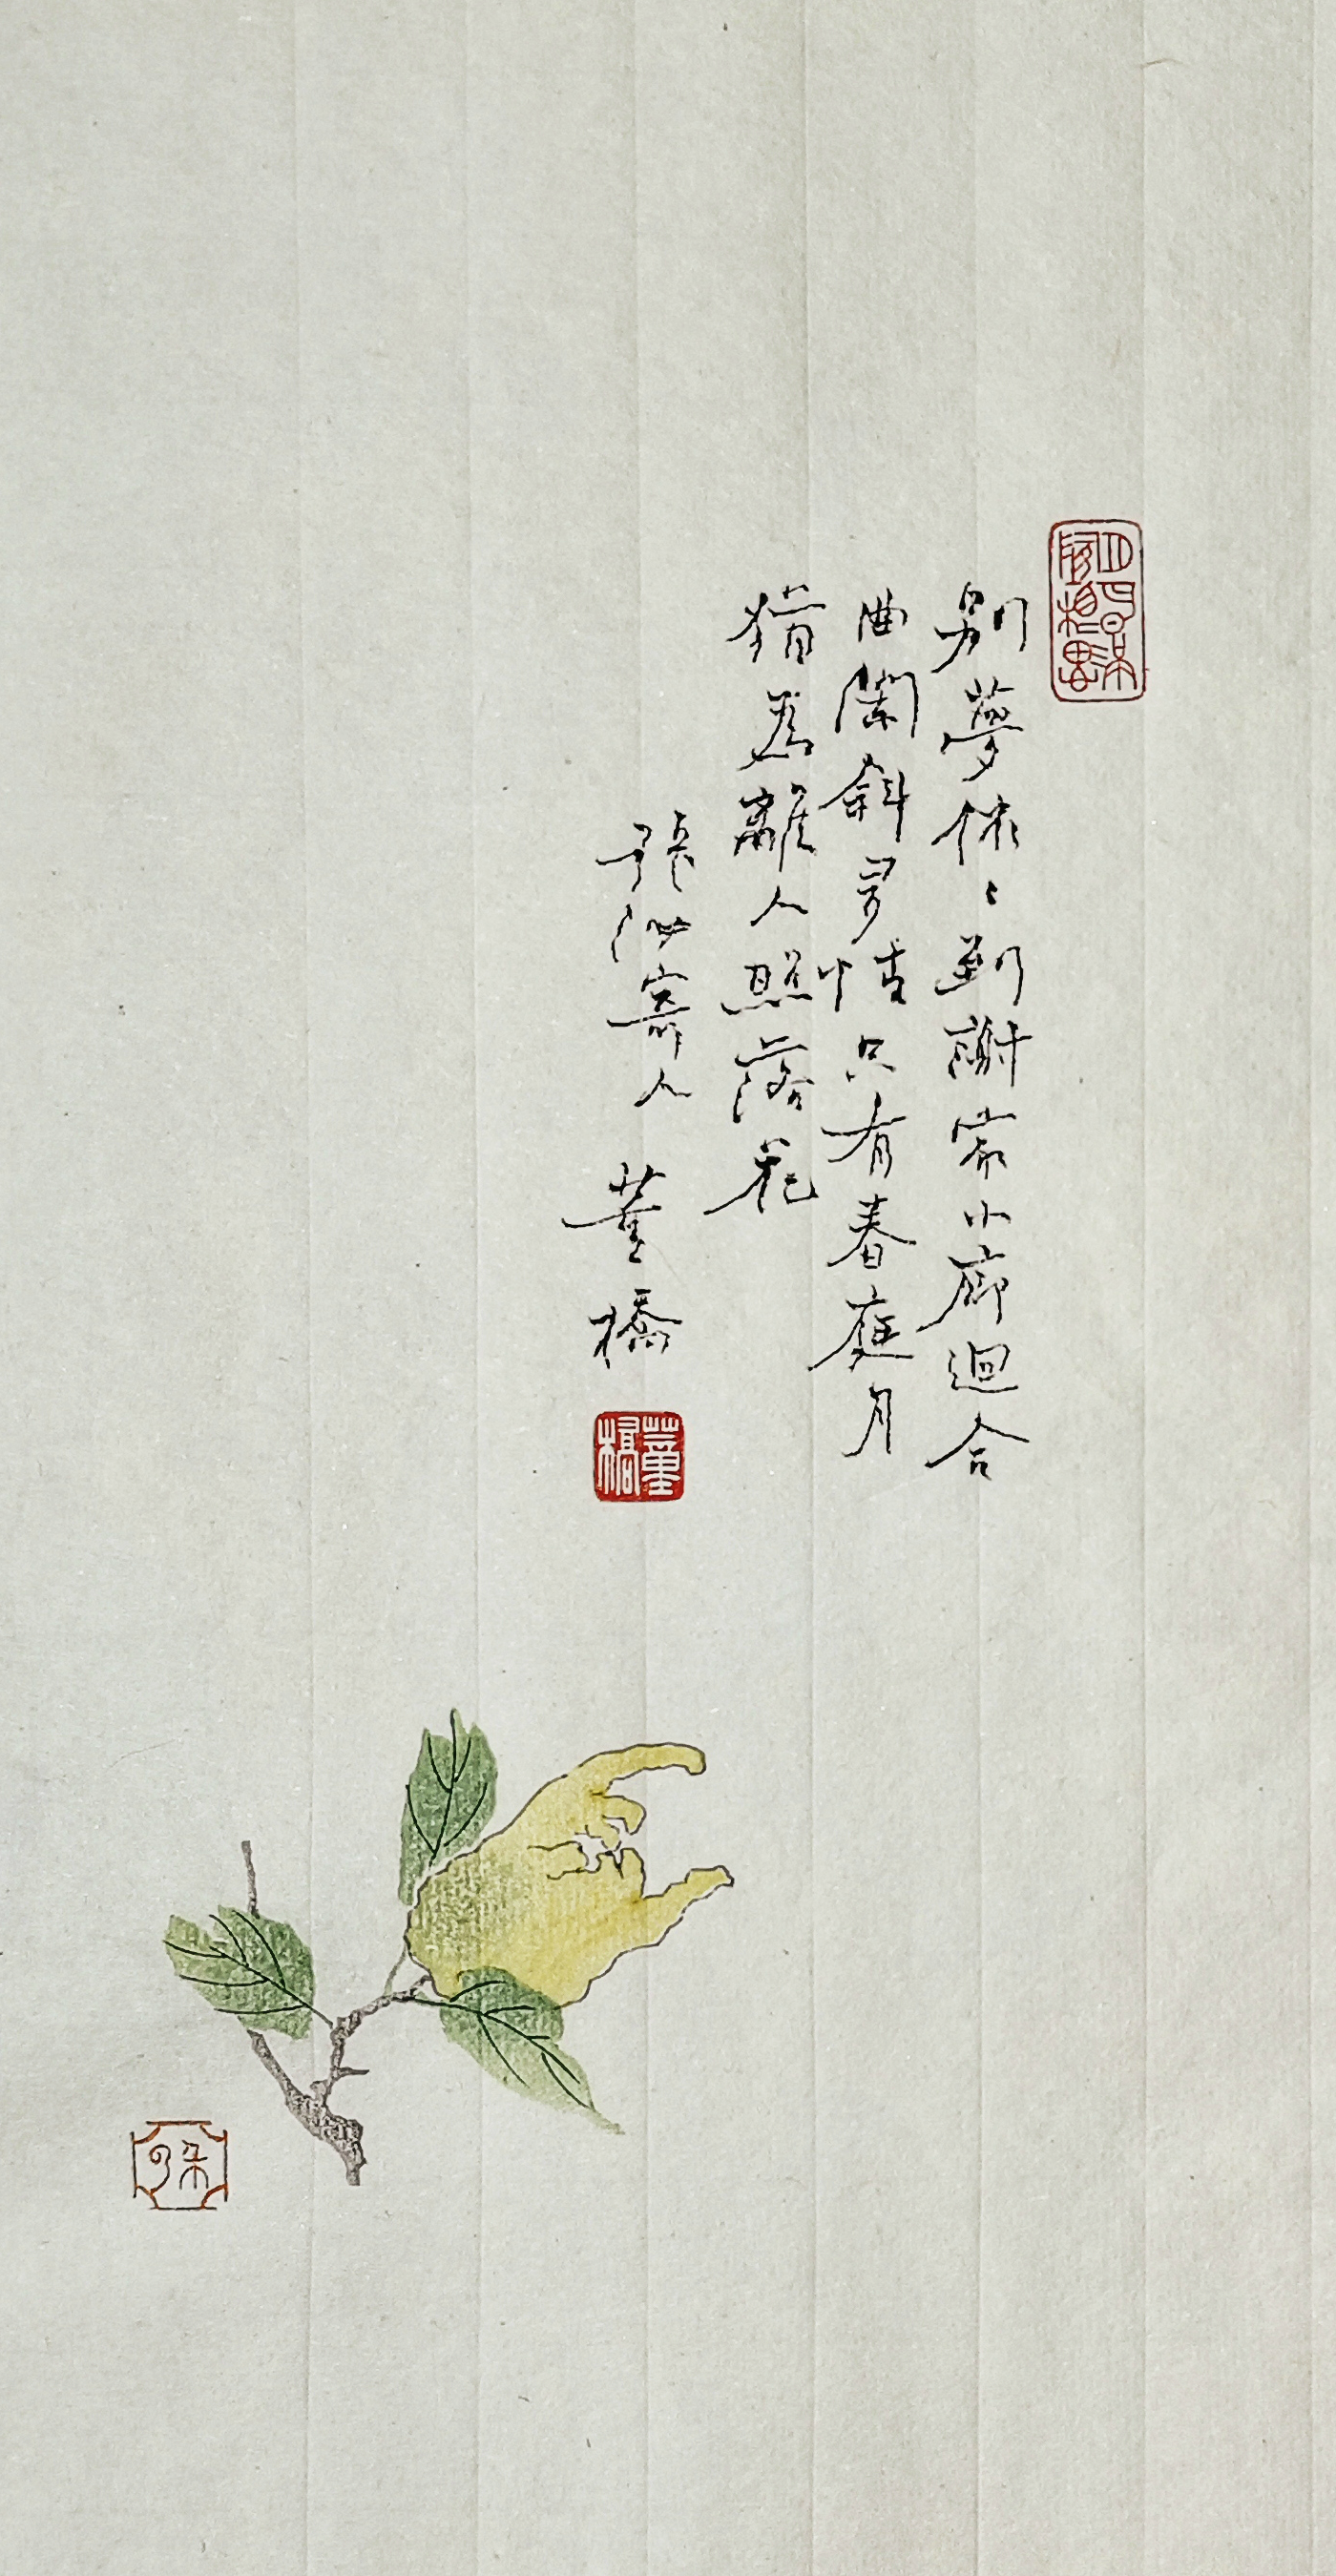 別夢依〻到謝家小廊迴合
曲闌斜多情只有春庭月
猶為離人照落花
張泌寄人 董橋
董橋